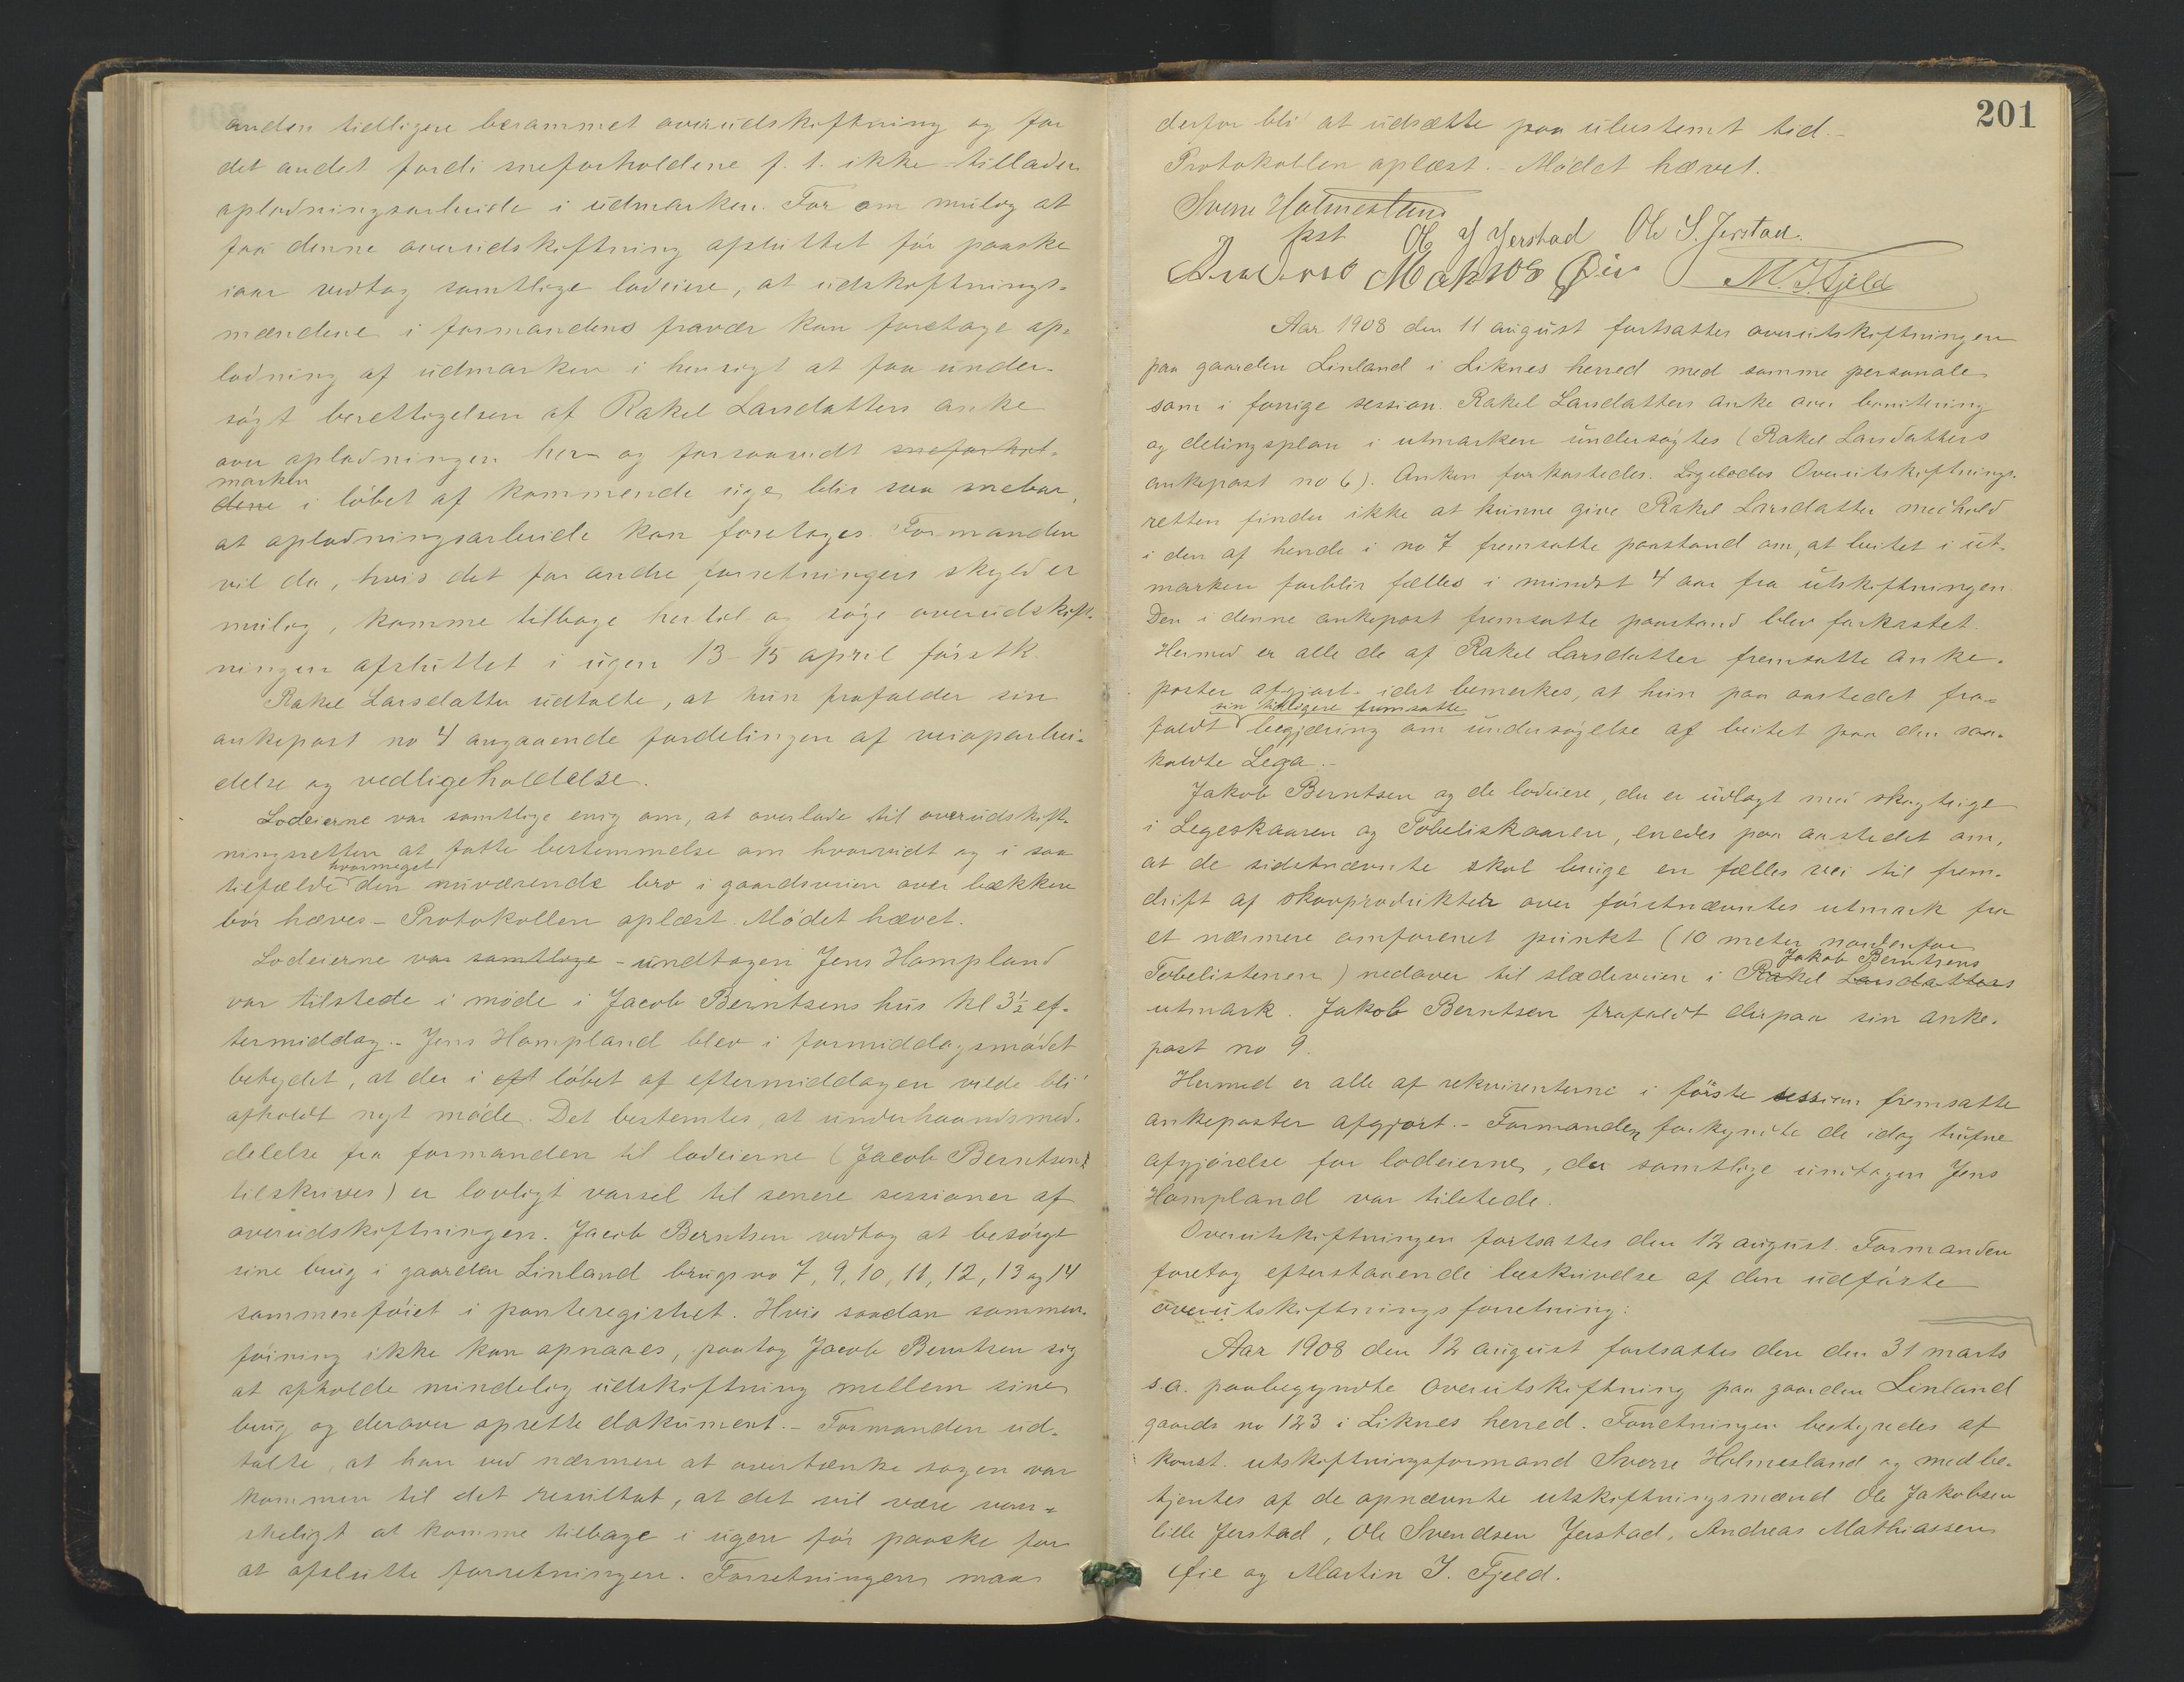 anden tidligere berammet overudskiftning og for
det andet fordi sneforholdene f. t. ikke tillader
aplodningsarbeide i udmarken. For om mulig at
faa denne overudskiftning afsluttet før paaske
iaar vedtog samtlige lodeiere, at udskiftnings-
mændene i formandens fravær kan foretage op-
lodning af udmarken i hensigt at faa under-
søgt berettigelsen af Rakel Larsdatters anke
over oplodningen her og forsaavidt sneforhol-
marken
dene i løbet af kommende uge blir saa snebar,
at oplodningsarbeide kan foretages. Formanden
vil da, hvis det for andre forretningers skyld er
mulig, komme tilbage hertil og søge overudskift-
ningen afsluttet i ugen 13-15 april førstk.
Rakel Larsdatter udtalte, at hun frafalder sin
ankepost no 4 angaaende fordelingen af veioparbei-
delse og vedligeholdelse.
Lodeierne var samtlige enig om, at overlade til overudskift-
ningsretten at fatte bestemmelse om hvorvidt og i saa
hvormeget
tilfælde den nuværende bro i gaardsveien over bækken
bør hæves - Protokollen oplæst. Mødet hævet.
Lodeierne var samtlige - undtagen Jens Hampland
var tilstede i møde i Jacob Berntsens hus kl 3½ ef-
termiddag. - Jens Hampland blev i formiddagsmødet
betydet, at der i eft løbet af eftermiddagen vilde bli
afholdt nyt møde. Det bestemtes, at underhaandsmed-
delelse fra formanden til lodeierne (Jacob Berntsen
tilskrives) er lovligt varsel til senere sessioner af
overudskiftningen. Jacob Berntsen vedtog at besørge
sine brug i gaarden Linland brugs no 7, 9, 10, 11, 12, 13 og 14
sammenføiet i panteregistret. Hvis saadan sammen-
føining ikke kan opnaaes, paatog Jacob Berntsen sig
at afholde mindelig udskiftning mellem sine
brug og derover oprette dokument. - Formanden ud-
talte, at han ved nærmere at overtænke sagen var
kommen til det resultat, at det vil være van-
skeligt at komme tilbage i ugen før paaske for
at afslutte forretningen. Forretningen maa
201
derfor bli at udsætte paa ubestemt tid. -
Protokollen oplæst. - Mødet hævet.
Sverre Holmesland
kst Ole J Jerstad Ole S. Jerstad.
M. J. Fjeld
Aar 1908 den 11 august fortsattes overutskiftningen
paa gaarden Linland i Liknes herred med samme personale
som i forrige session. Rakel Larsdatters anke over bonitering
og delingsplan i utmarken undersøgtes (Rakel Larsdatters
ankepost no 6). Anken forkastedes. Ligeledes Overutskiftnings-
retten finder ikke at kunne give Rakel Larsdatter medhold
i den af hende i no 7 fremsatte paastand om, at beitet i ut-
marken forblir fælles i mindst 4 aar fra utskiftningen.
Den i denne ankepost fremsatte paastand blev forkastet.
Hermed er alle de af Rakel Larsdatter fremsatte anke-
poster afgjort - idet bemerkes, at hun paa aastedet fra-
sin tidligere fremsatte
faldt begjæring om undersøgelse af beitet paa den saa-
kaldte Lega. -
Jakob Berntsen og de lodeiere, der er udlagt med skogteige
i Legeskaaren og Tobeliskaaren, enedes paa aastedet om,
at de sidstnævnte skal bruge en fælles vei til frem-
drift af skovprodukter over førstnævntes utmark fra
et nærmere omforenet punkt (10 meter nordenfor
Jakob Berntsens
Tobelistenen) nedover til slædeveien i Rakel Larsdatters
utmark. Jakob Berntsen frafaldt derpaa sin anke-
post no 9.
Hermed er alle af rekvirenterne i første session fremsatte
ankeposter afgjort. - Formanden forkyndte de idag trufne
afgjørelse for lodeierne, der samtlige undtagen Jens
Hampland var tilstede.
Overutskiftningen fortsattes den 12 august. Formanden
foretog efterstaaende beskrivelse af den udførte
overutskiftningsforretning:
Aar 1908 den 12 august fortsattes den den 31 marts
s.a. paabegyndte overutskiftning paa gaarden Linland
gaards no 123 i Liknes herred. Forretningen bestyredes af
konst. utskiftningsformand Sverre Holmesland og medbe-
tjentes af de opnævnte utskiftningsmænd Ole Jakobsen
lille Jerstad, Ole Svendsen Jerstad, Andreas Mathiassen
Øie og Martin J. Fjeld.